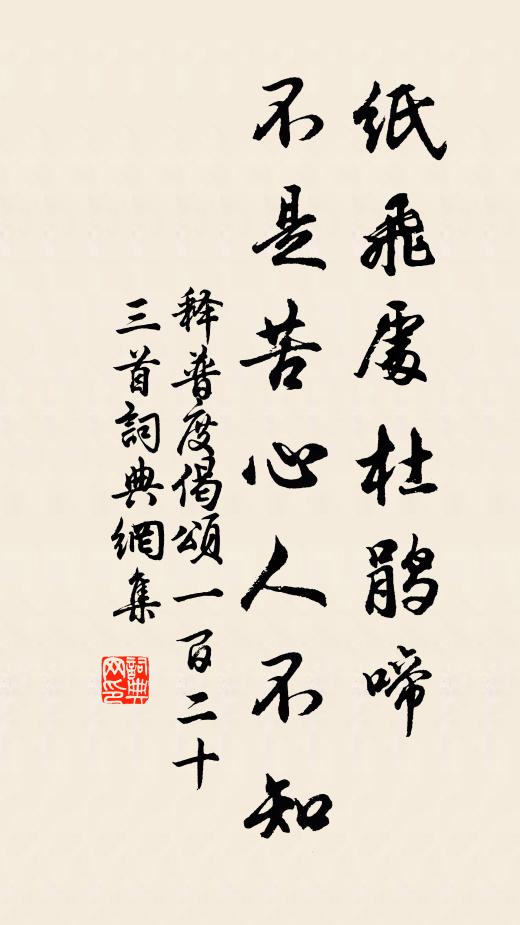 紙飛處杜鵑啼
不是苦心人不知
释普度偈頌一百二十
三首詞典網集
詞典网印